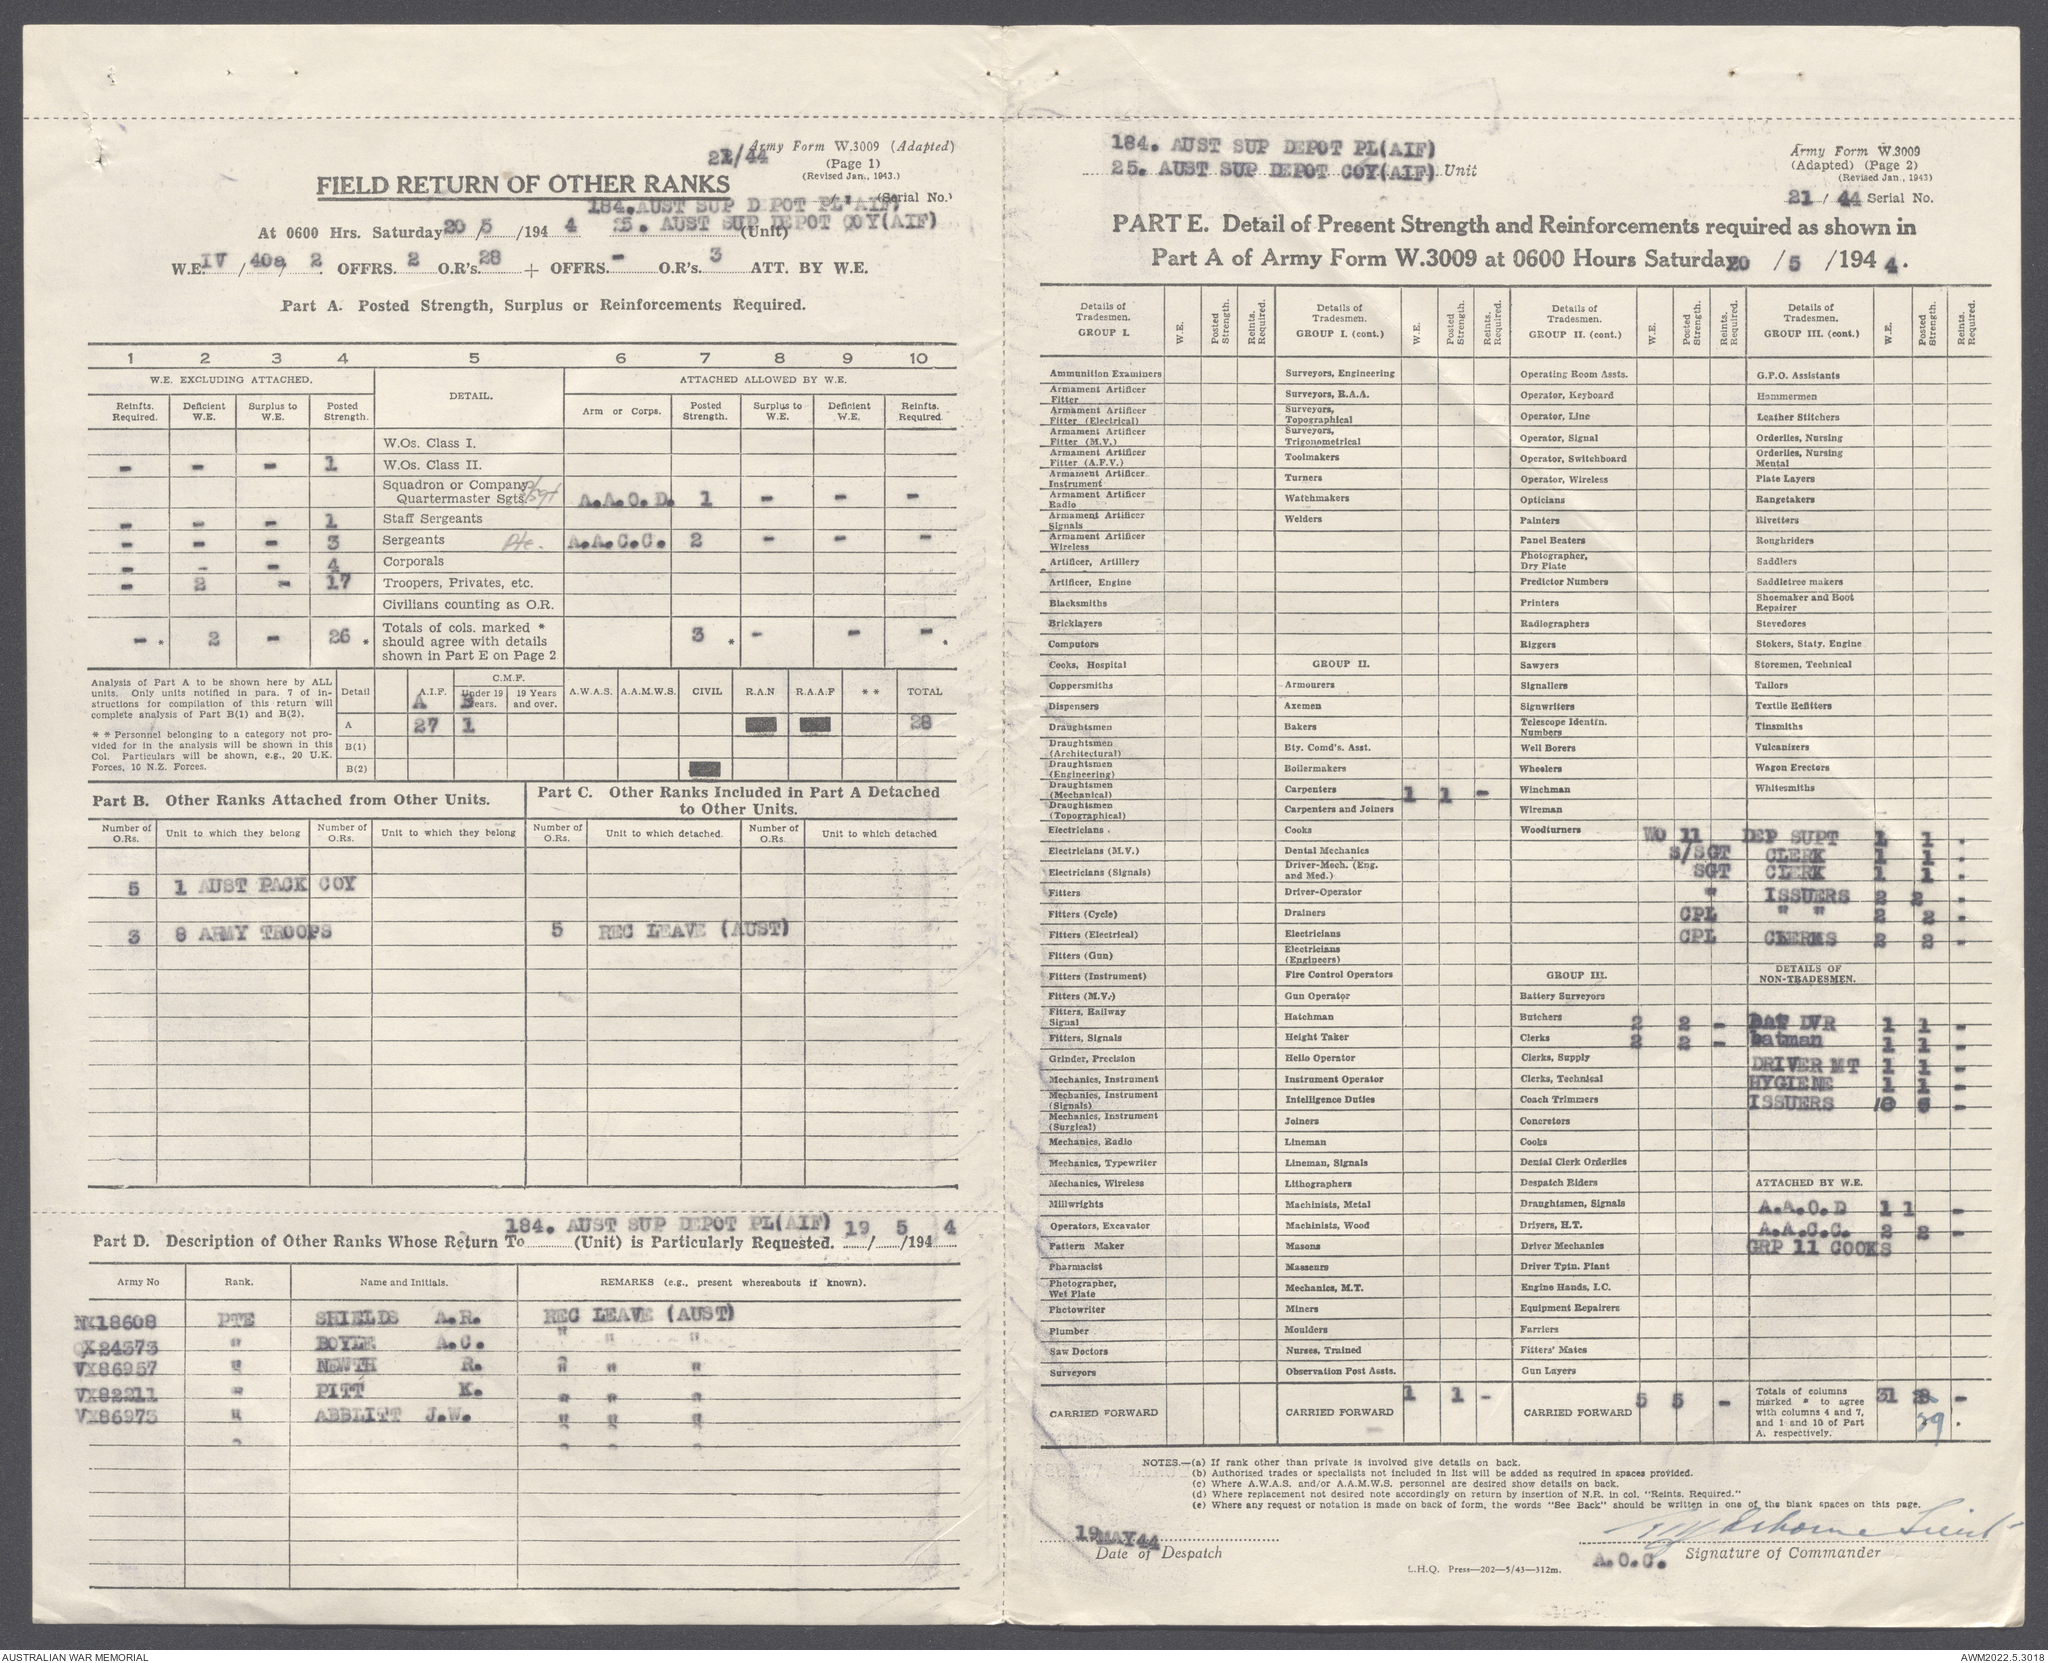 21/44
Army Form W.3009 (Adapted)
(Page 1)
(Revised Jan., 1943.)
FIELD RETURN OF OTHER RANKS
(Serial No.)
184. AUST SUP DEPOT PL(AIF)
At 0600 Hrs. Saturday 20/5/194 4 25. AUST SUP DEPOT COY(AIF) (Unit)
W.E. IV / 40a / 2 OFFRS. 2 O.R's. 28 + OFFRS. - O.R's. 3 ATT. BY W.E.
Part A. Posted Strength, Surplus or Reinforcements Required.
1 2 3 4 5 6 7 8 9 10
W.E. EXCLUDING ATTACHED. DETAIL. ATTACHED ALLOWED BY W.E.
Reinfts. Required. Deficient W.E. Surplus to W.E. Posted Strength. Arm or Corps. Posted Strength. Surplus to W.E. Deficient W.E. Reinfts. Required
W.Os. Class I.
- - - 1 W.Os. Class II.
Squadron or Company
Quartermaster Sgts. S/Sgt A.A.O.D. 1 - - -
- - - 1 Staff Sergeants
- - - 3 Sergeants Pte. A.A.C.C. 2 - - -
- - - 4 Corporals
- 2 - 17 Troopers, Privates, etc.
Civilians counting as O.R.
- * 2 - 26 * Totals of cols. marked * should agree with details shown in Part E on Page 2 3 * - - - *
Analysis of Part A to be shown here by ALL
units. Only units notified in para. 7 of in-
structions for compilation of this return will
complete analysis of Part B(1) and B(2).
* * Personnel belonging to a category not pro-
vided for in the analysis will be shown in this
Col. Particulars will be shown, e.g., 20 U.K.
Forces, 10 N.Z. Forces.
Detail A.I.F. C.M.F. Under 19 Years. 19 Years and over. A.W.A.S. A.A.M.W.S. CIVIL R.A.N R.A.A.F * * TOTAL
A B
A 27 1 28
B(1)
B(2)
Part B. Other Ranks Attached from Other Units.
Number of O.Rs. Unit to which they belong Number of O.Rs. Unit to which they belong
5 1 AUST PACK COY
3 8 ARMY TROOPS
Part C. Other Ranks Included in Part A Detached
to Other Units.
Number of O.Rs. Unit to which detached. Number of O.Rs. Unit to which detached
5 REC LEAVE (AUST)
184. AUST SUP DEPOT PL(AIF) 19 5 4
Part D. Description of Other Ranks Whose Return To (Unit) is Particularly Requested. / /194
Army No Rank. Name and Initials. REMARKS (e.g., present whereabouts if known).
NX18608 PTE SHIELDS A.R. REC LEAVE (AUST)
QX24373 " BOYLE A.C. " " "
VX86957 " NEWTH R. " " "
VX82211 " PITT K. " " "
VX86973 " ABBLITT J.W. " " "
184. AUST SUP DEPOT PL(AIF)
25. AUST SUP DEPOT COY(AIF) Unit
Army Form W.3009
(Adapted) (Page 2)
(Revised Jan., 1943)
21 / 44 Serial No.
PART E. Detail of Present Strength and Reinforcements required as shown in
Part A of Army Form W.3009 at 0600 Hours Saturday 20 / 5 /194 4.
Details of Tradesmen. GROUP I. W.E. Posted Strength. Reints. Required.
Ammunition Examiners
Armament Artificer Fitter
Armament Artificer Fitter (Electrical)
Armament Artificer Fitter (M.V.)
Armament Artificer Fitter (A.F.V.)
Armament Artificer Instrument
Armament Artificer Radio
Armament Artificer Signals
Armament Artificer Wireless
Artificer, Artillery
Artificer, Engine
Blacksmiths
Bricklayers
Computors
Cooks, Hospital
Coppersmiths
Dispensers
Draughtsmen
Draughtsmen (Architectural)
Draughtsmen (Engineering)
Draughtsmen (Mechanical)
Draughtsmen (Topographical)
Electricians
Electricians (M.V.)
Electricians (Signals)
Fitters
Fitters (Cycle)
Fitters (Electrical)
Fitters (Gun)
Fitters (Instrument)
Fitters (M.V.)
Fitters, Railway Signal
Fitters, Signals
Grinder, Precision
Mechanics, Instrument
Mechanics, Instrument (Signals)
Mechanics, Instrument (Surgical)
Mechanics, Radio
Mechanics, Typewriter
Mechanics, Wireless
Millwrights
Operators, Excavator
Pattern Maker
Pharmacist
Photographer, Wet Plate
Photowriter
Plumber
Saw Doctors
Surveyors
CARRIED FORWARD
Details of Tradesmen. GROUP I. (cont.) W.E. Posted Strength. Reints. Required.
Surveyors, Engineering
Surveyors, R.A.A.
Surveyors, Topographical
Surveyors, Trigonometrical
Toolmakers
Turners
Watchmakers
Welders
GROUP II.
Armourers
Axemen
Bakers
Bty. Comd's. Asst.
Boilermakers
Carpenters 1 1 -
Carpenters and Joiners
Cooks
Dental Mechanics
Driver-Mech. (Eng. and Med.)
Driver-Operator
Drainers
Electricians
Electricians (Engineers)
Fire Control Operators
Gun Operator
Hatchman
Height Taker
Helio Operator
Instrument Operator
Intelligence Duties
Joiners
Lineman
Lineman, Signals
Lithographers
Machinists, Metal
Machinists, Wood
Masons
Masseurs
Mechanics, M.T.
Miners
Moulders
Nurses, Trained
Observation Post Assts.
CARRIED FORWARD 1 1 -
Details of Tradesmen. GROUP II. (cont.) W.E. Posted Strength. Reints. Required.
Operating Room Assts.
Operator, Keyboard
Operator, Line
Operator, Signal
Operator, Switchboard
Operator, Wireless
Opticians
Painters
Panel Beaters
Photographer, Dry Plate
Predictor Numbers
Printers
Radiographers
Riggers
Sawyers
Signallers
Signwriters
Telescope Identin. Numbers
Well Borers
Wheelers
Winchman
Wireman
Woodturners
GROUP III.
Battery Surveyors
Butchers 2 2 -
Clerks 2 2 -
Clerks, Supply
Clerks, Technical
Coach Trimmers
Concretors
Cooks
Dental Clerk Orderlies
Despatch Riders
Draughtsmen, Signals
Drivers, H.T.
Driver Mechanics
Driver Tptn. Plant
Engine Hands, I.C.
Equipment Repairers
Farriers
Fitters' Mates
Gun Layers
CARRIED FORWARD 5 5 -
Details of Tradesmen. GROUP III. (cont.) W.E. Posted Strength. Reints. Required.
G.P.O. Assistants
Hammermen
Leather Stitchers
Orderlies, Nursing
Orderlies, Nursing Mental
Plate Layers
Rangetakers
Rivetters
Roughriders
Saddlers
Saddletree makers
Shoemaker and Boot Repairer
Stevedores
Stokers, Staty. Engine
Storemen, Technical
Tailors
Textile Refitters
Tinsmiths
Vulcanizers
Wagon Erectors
Whitesmiths
WO 11 DEP SUPT 1 1 -
S/SGT CLERK 1 1 -
SGT CLERK 1 1 -
" ISSUERS 2 2 -
CPL " " 2 2 -
CPL CLERKS 2 2 -
DETAILS OF NON-TRADESMEN.
BAT DVR 1 1 -
batman 1 1 -
DRIVER MT 1 1 -
HYGIENE 1 1 -
ISSUERS -
ATTACHED BY W.E.
A.A.O.D 1 1 -
A.A.C.C. 2 2 -
GRP 11 COOKS
Totals of columns marked * to agree with columns 4 and 7, and 1 and 10 of Part A, respectively. 31 29 -
NOTES.—(a) If rank other than private is involved give details on back.
(b) Authorised trades or specialists not included in list will be added as required in spaces provided.
(c) Where A.W.A.S. and/or A.A.M.W.S. personnel are desired show details on back.
(d) Where replacement not desired note accordingly on return by insertion of N.R. in col. "Reints. Required."
(e) Where any request or notation is made on back of form, the words "See Back" should be written in one of the blank spaces on this page.
19 MAY 44
Date of Despatch
Osborne Lieut
A.O.C. Signature of Commander
L.H.Q. Press—202—5/43—312m.
AUSTRALIAN WAR MEMORIAL
AWM2022.5.3018